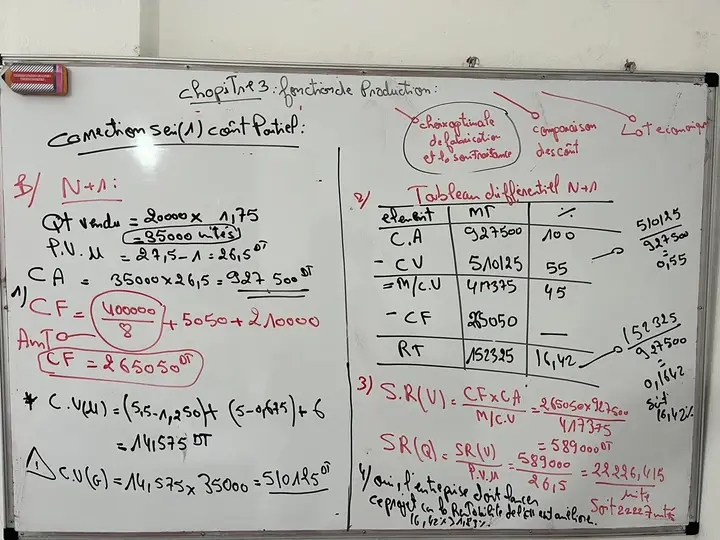 chapitre 3: fonction de Production:
choix optimale
de fabrication
et la sous-traitance
comparaison
des coût
Lot économique
correction Seri(1) coût Partiel:
B/ N+1:
QT vendu = 20000 x 1,75
= 35000 unités
P.V.µ = 27,5-1 = 26,5 DT
CA = 35000 x 26,5 = 927 500 DT
1) CF = 400000/8 + 5050 + 210000
AmT
CF = 265050 DT
* C.V(µ) = (5,5-1,250) + (5-0,675) + 6
= 14,575 DT
C.V(G) = 14,575 x 35000 = 510125 DT
2/ Tableau différentiel N+1
element MT %
C.A 927500 100
- CV 510125 55
= M/C.V 417375 45
- CF 265050 —
RT 152325 16,42
510125/927500
= 0,55
152325/927500
= 0,1642
soit
16,42%
3) S.R(V) = CF x CA/M/C.V = 265050 x 927500/417375
= 589000 DT
SR(Q) = SR(V)/P.V.µ = 589000/26,5 = 22226,415
unité
Soit 22227 unités
4/ oui, l'entreprise doit lancer
ce projet car la Rentabilité est améliorer.